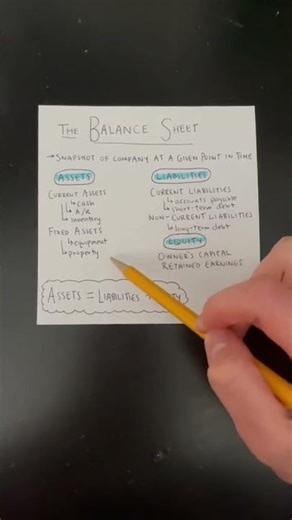 THE BALANCE SHEET
→ SNAPSHOT OF COMPANY AT A GIVEN POINT IN TIME
ASSETS
CURRENT ASSETS
↳ cash
↳ A/R
↳ inventory
FIXED ASSETS
↳ equipment
↳ property
LIABILITIES
CURRENT LIABILITIES
↳ accounts payable
↳ short-term debt
NON-CURRENT LIABILITIES
↳ long-term debt
EQUITY
OWNER'S CAPITAL
RETAINED EARNINGS
ASSETS = LIABILITIES